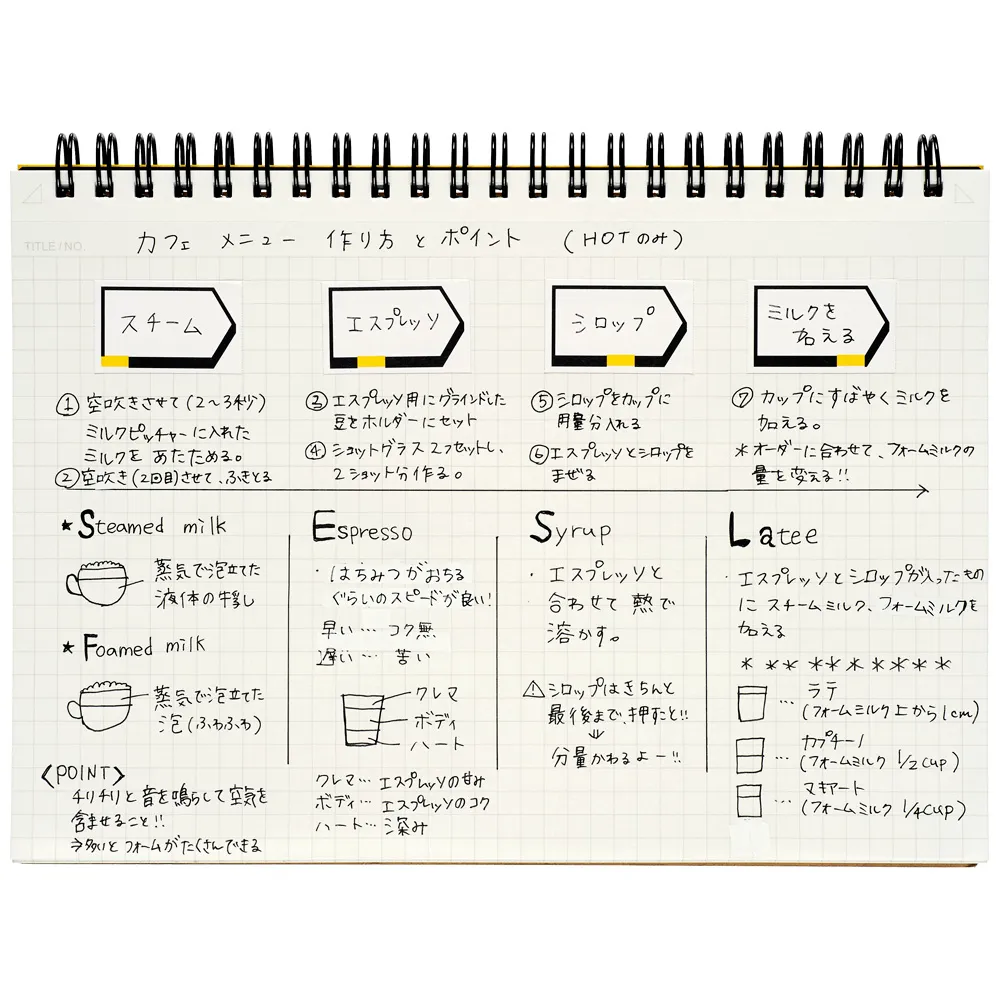 TITLE / NO.
カフェ メニュー 作り方 と ポイント (HOTのみ)
スチーム
① 空吹きさせて(2〜3秒)
ミルクピッチャーに入れた
ミルクを あたためる。
② 空吹き(2回目)させて、ふきとる
エスプレッソ
③ エスプレッソ用にグラインドした
豆をホルダーにセット
④ ショットグラス 2つセットし、
2ショット分作る。
シロップ
⑤ シロップをカップに
用量分入れる
⑥ エスプレッソとシロップを
まぜる
ミルクを
加える
⑦ カップにすばやくミルクを
加える。
*オーダーに合わせて、フォームミルクの
量を変える!!
★Steamed milk
蒸気で泡立てた
液体の牛乳
★Foamed milk
蒸気で泡立てた
泡(ふわふわ)
<POINT>
チリチリと音を鳴らして空気を
含ませること!!
→多いとフォームがたくさんできる
Espresso
・はちみつがおちる
ぐらいのスピードが良い!
早い…コク無
遅い…苦い
クレマ
ボディ
ハート
クレマ…エスプレッソの甘み
ボディ…エスプレッソのコク
ハート…深み
Syrup
・エスプレッソと
合わせて 熱で
溶かす。
⚠シロップはきちんと
最後まで、押すと!!
⇓
分量かわるよー!!
Latee
・エスプレッソとシロップが入ったもの
に スチームミルク、フォームミルクを
加える
* * * * * * * * * *
… ラテ
(フォームミルク上から1cm)
… カプチーノ
(フォームミルク 1/2cup)
… マキアート
(フォームミルク 1/4cup)